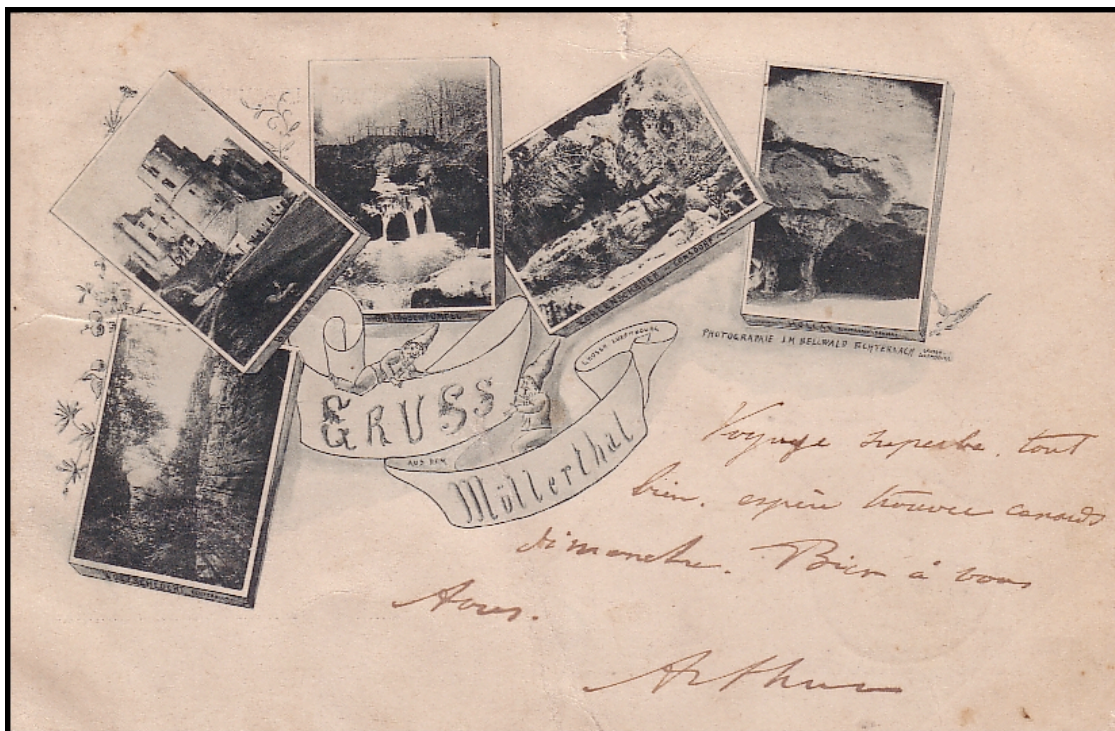 GROSSH. LUXEMBOURG
GRUSS
AUS DEM
Möllerthal
PHOTOGRAPHIE IM BELLWALD ECHTERNACH
Voyage superbe. tout
bien. espère trouver canards
dimanche. Bien à vous
Arthur